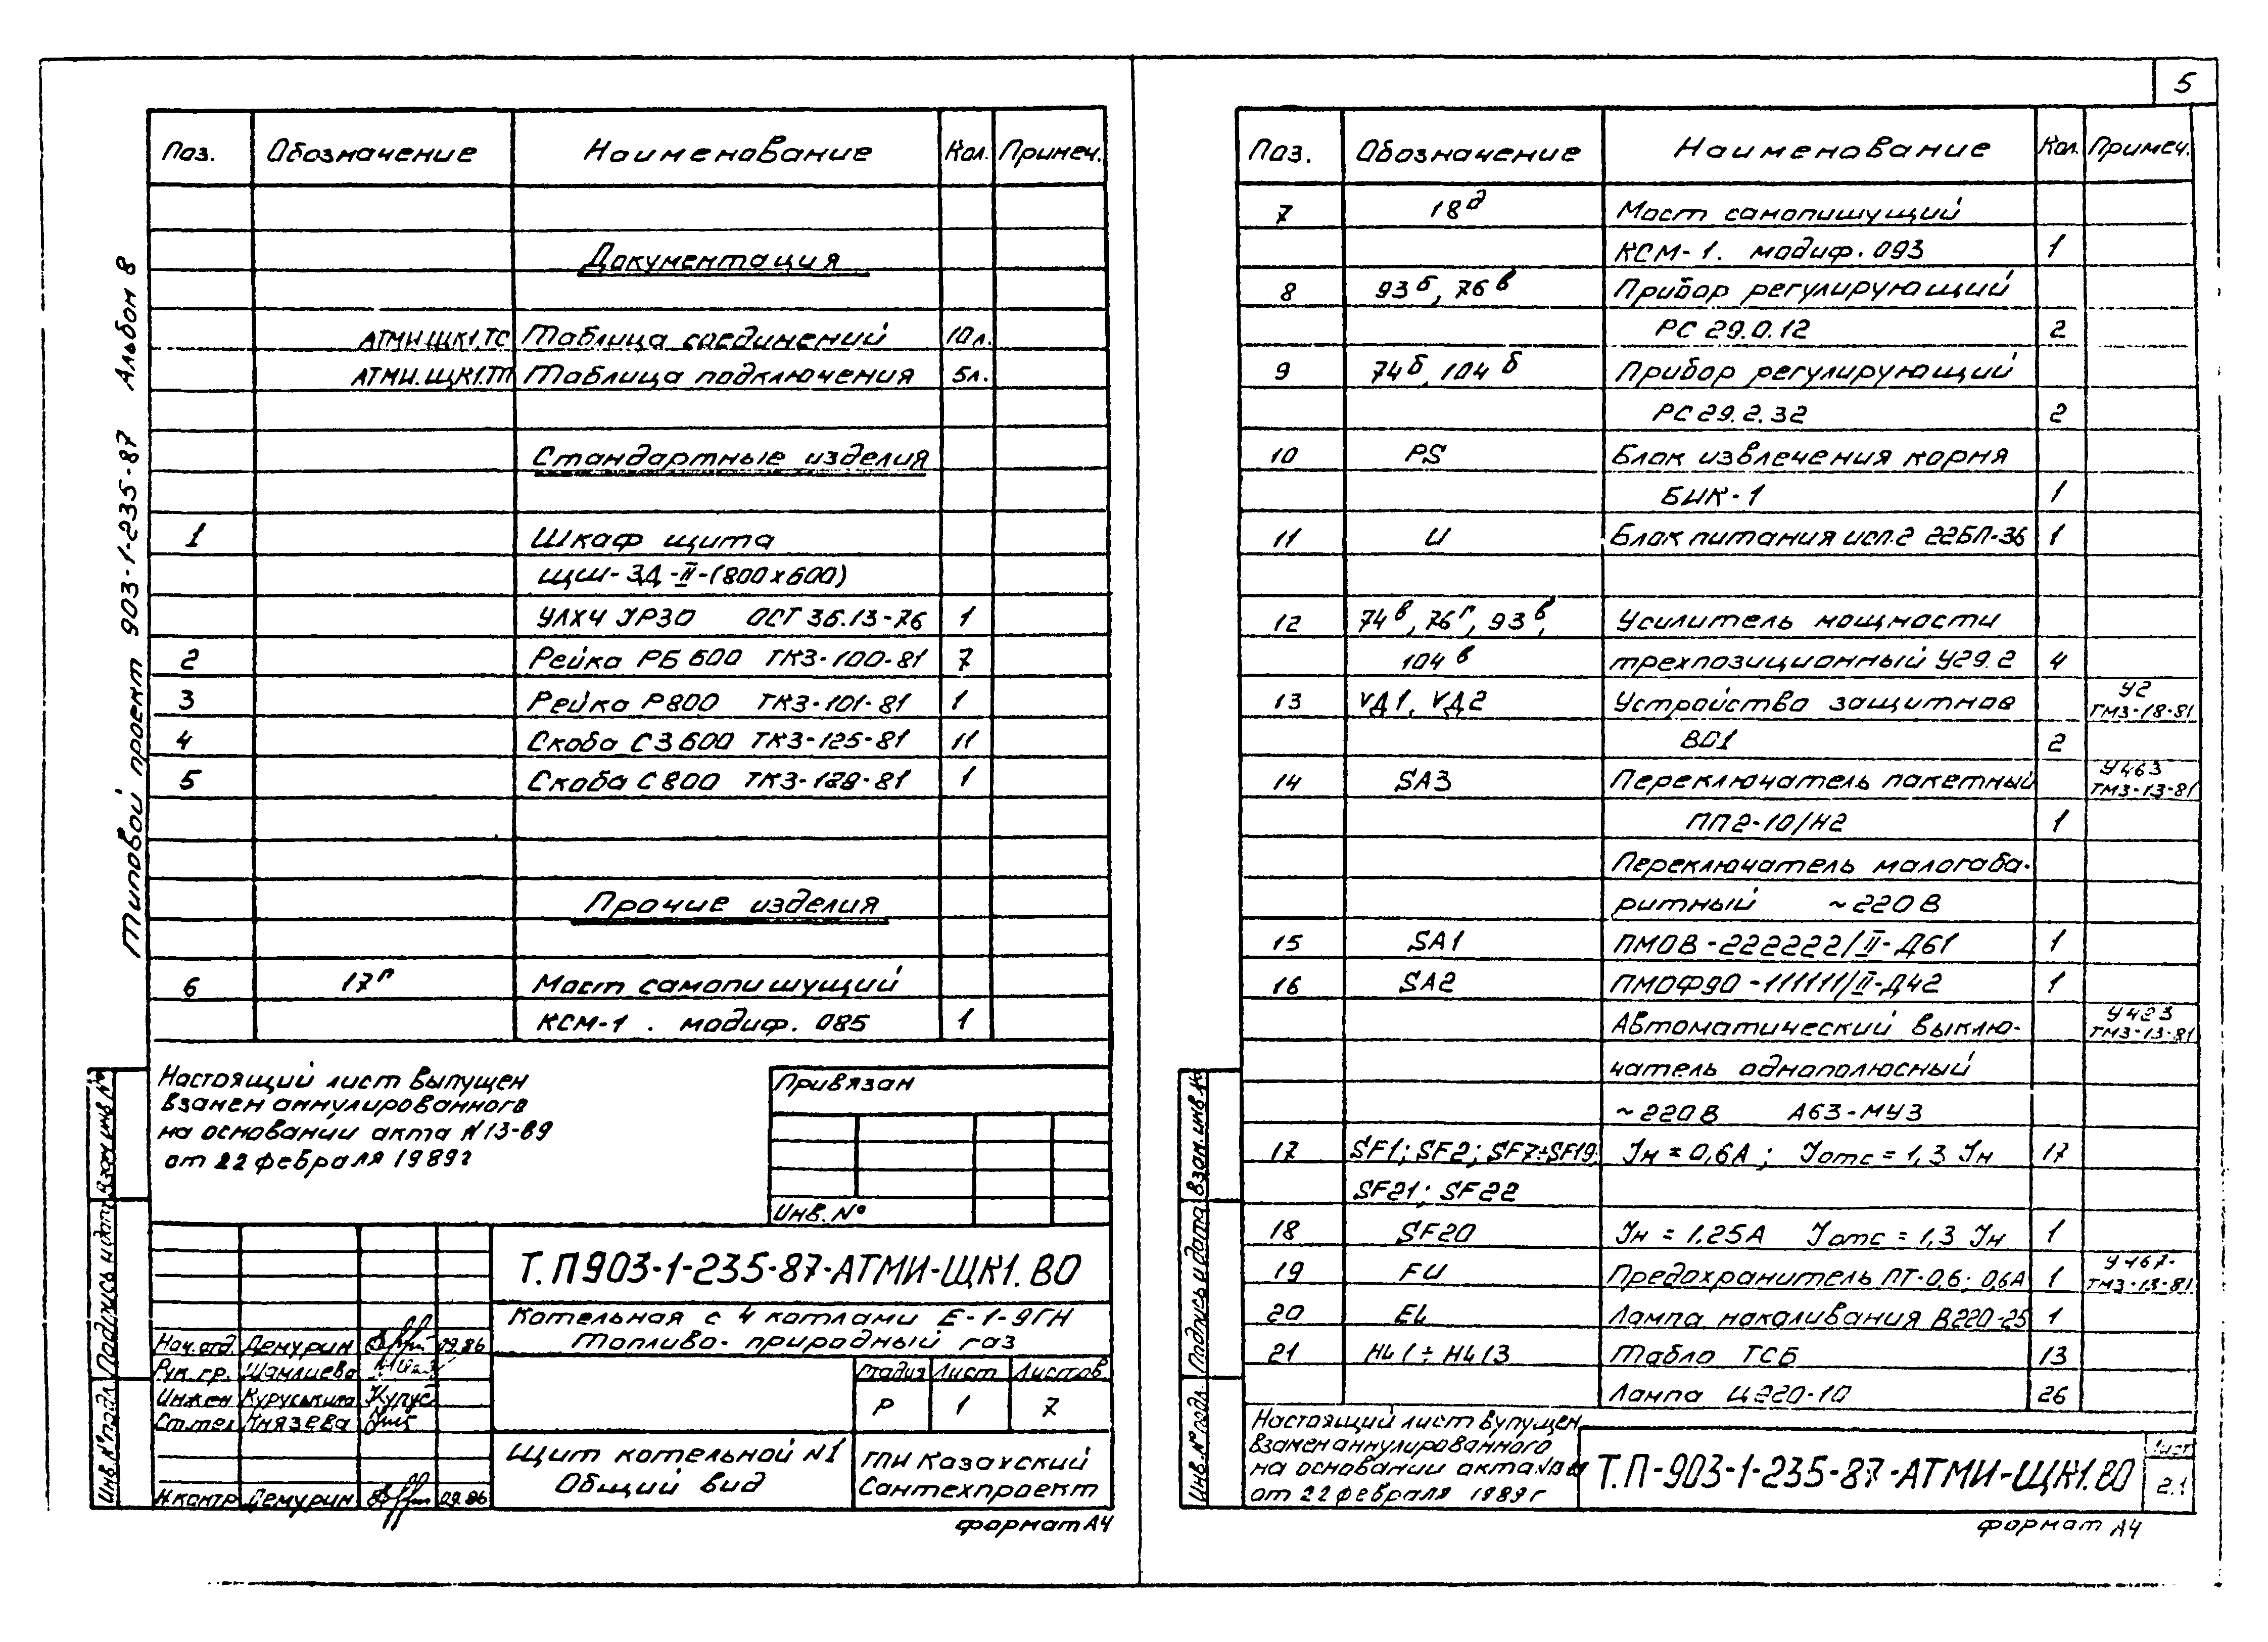 5
Типовой проект 903-1-235-87 Альбом 8
Поз. Обозначение Наименование Кол. Примеч.
Документация
АТМИ.ЩК1.ТС Таблица соединений 10л.
АТМИ.ЩК1.ТП Таблица подключения 5л.
Стандартные изделия
1 Шкаф щита
ЩШ-ЗД-II-(800х600)
УЛХЧ IР30 ОСТ 36.13-76 1
2 Рейка РБ 600 ТК3-100-81 7
3 Рейка Р800 ТК3-101-81 1
4 Скоба С3 600 ТК3-125-81 11
5 Скоба С 800 ТК3-129-81 1
Прочие изделия
6 17г Мост самопишущий
КСМ-1. модиф. 085 1
Настоящий лист выпущен
взамен аннулированного
на основании акта N13-89
от 22 февраля 1989г
Привязан
Инв. №
Т.П903-1-235-87-АТМИ-ЩК1.ВО
Котельная с 4 котлами Е-1-9ГН
Топливо-природный газ
Нач.отд. Демурин 09.86
Рук. гр. Шамлиева
Инжен Куруськина
Ст.тех Князева
Н.контр Демурин 09.86
Стадия Лист Листов
Р 1 7
Щит котельной N1
Общий вид
ГПИ Казахский
Сантехпроект
Формат А4
Инв.№ подл. Подпись и дата Взам.инв.№
Поз. Обозначение Наименование Кол. Примеч.
7 18д Мост самопишущий
КСМ-1. модиф. 093 1
8 93б, 76в Прибор регулирующий
РС 29.0.12 2
9 74б, 104б Прибор регулирующий
РС 29.2.32 2
10 PS Блок извлечения корня
БИК-1 1
11 U Блок питания исп.2 22БП-36 1
12 74в, 76г, 93в, Усилитель мощности
104в трехпозиционный У29.2 4
13 VД1, VД2 Устройство защитное У2 ТМ3-18-81
ВО1 2
14 SA3 Переключатель пакетный У463 ТМ3-13-81
ПП2-10/Н2 1
Переключатель малогаба-
ритный ~220В
15 SA1 ПМОВ-222222/II-Д61 1
16 SA2 ПМОФ90-111111/II-Д42 1
Автоматический выклю- У423 ТМ3-13-81
чатель однополюсный
~220В А63-МУ3
17 SF1; SF2; SF7÷SF19; Iн = 0,6А; Iотс = 1,3 Iн 17
SF21; SF22
18 SF20 Iн = 1,25А Iотс = 1,3 Iн 1
19 FU Предохранитель ПТ-0,6; 0,6А 1 У467- ТМ3-13-81
20 EL Лампа накаливания В220-25 1
21 HL1÷HL13 Табло ТСБ 13
Лампа Ц220-10 26
Настоящий лист выпущен
взамен аннулированного
на основании акта
от 22 февраля 1989г
Т.П-903-1-235-87-АТМИ-ЩК1.ВО
Лист
2.1
Формат А4
Инв.№ подл. Подпись и дата Взам.инв.№